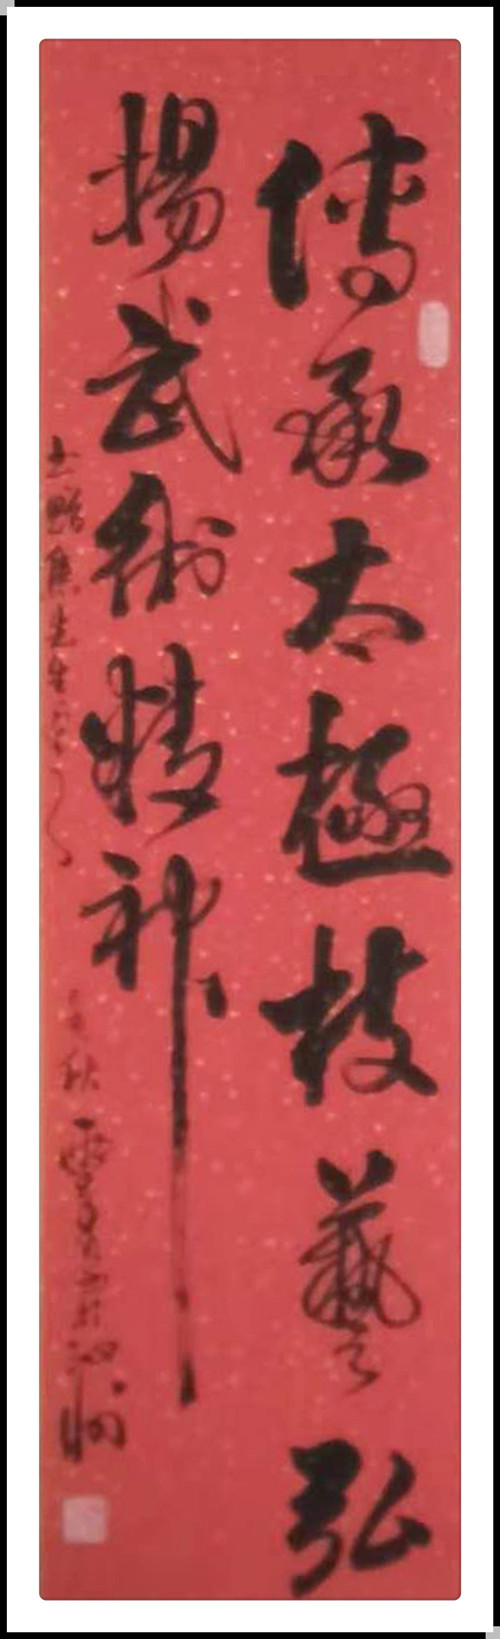 傳承太極技藝弘
揚武術精神
先生
秋